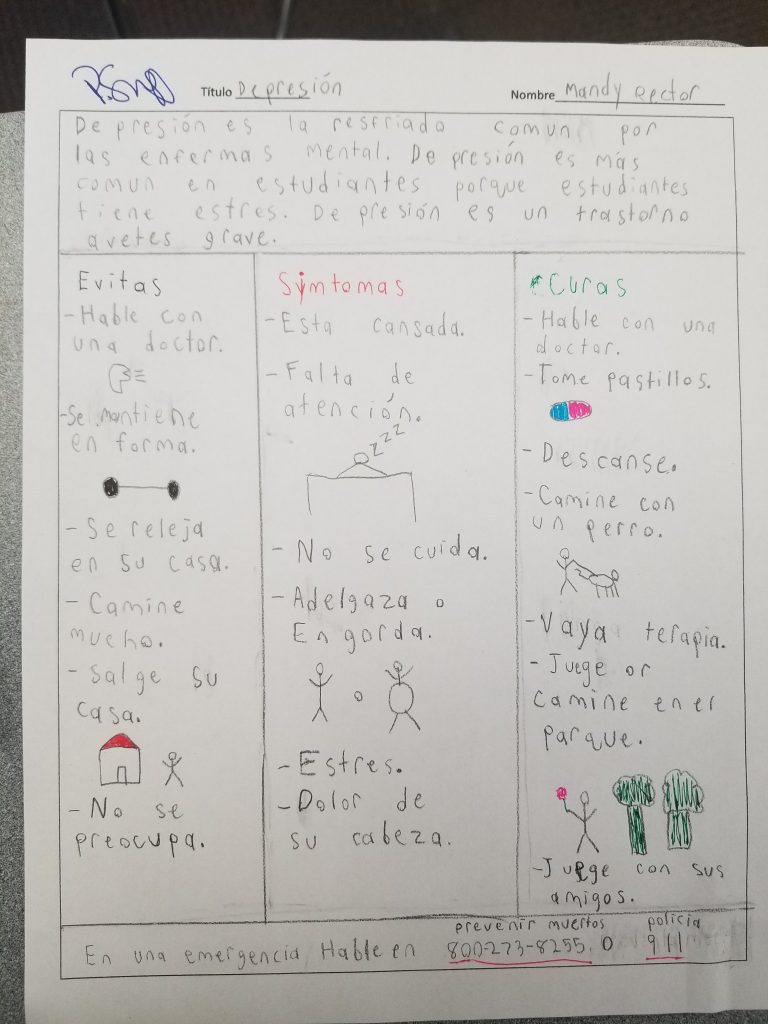 Título Depresión
Nombre Mandy Rector
Depresión es la resfriado comun por
las enfermas mental. Depresión es más
comun en estudiantes porque estudiantes
tiene estres. Depresión es un trastorno
avetes grave.
Evitas
-Hable con
una doctor.
-Se mantiene
en forma.
-Se releja
en su casa.
-Camine
mucho.
-Salge su
casa.
-No se
preocupa.
Symtomas
-Esta cansada.
-Falta de
atención.
zzzz
-No se cuida.
-Adelgaza o
Engorda.
o
-Estres.
-Dolor de
su cabeza.
Curas
-Hable con una
doctor.
-Tome pastillos.
-Descanse.
-Camine con
un perro.
-Vaya terapia.
-Juege or
camine en er
parque.
-Juege con sus
amigos.
prevenir muertos policia
En una emergencia Hable en 800-273-8255. O 911